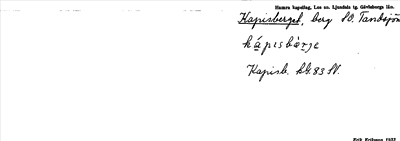 Hamra kapellag, Los sn. Ljusdals tg. Gävleborgs län.
Kapisberget, berg SO. Tandsjön
kápisbàrje
Kapisb. kG. 83 SV.
Erik Eriksson 1932